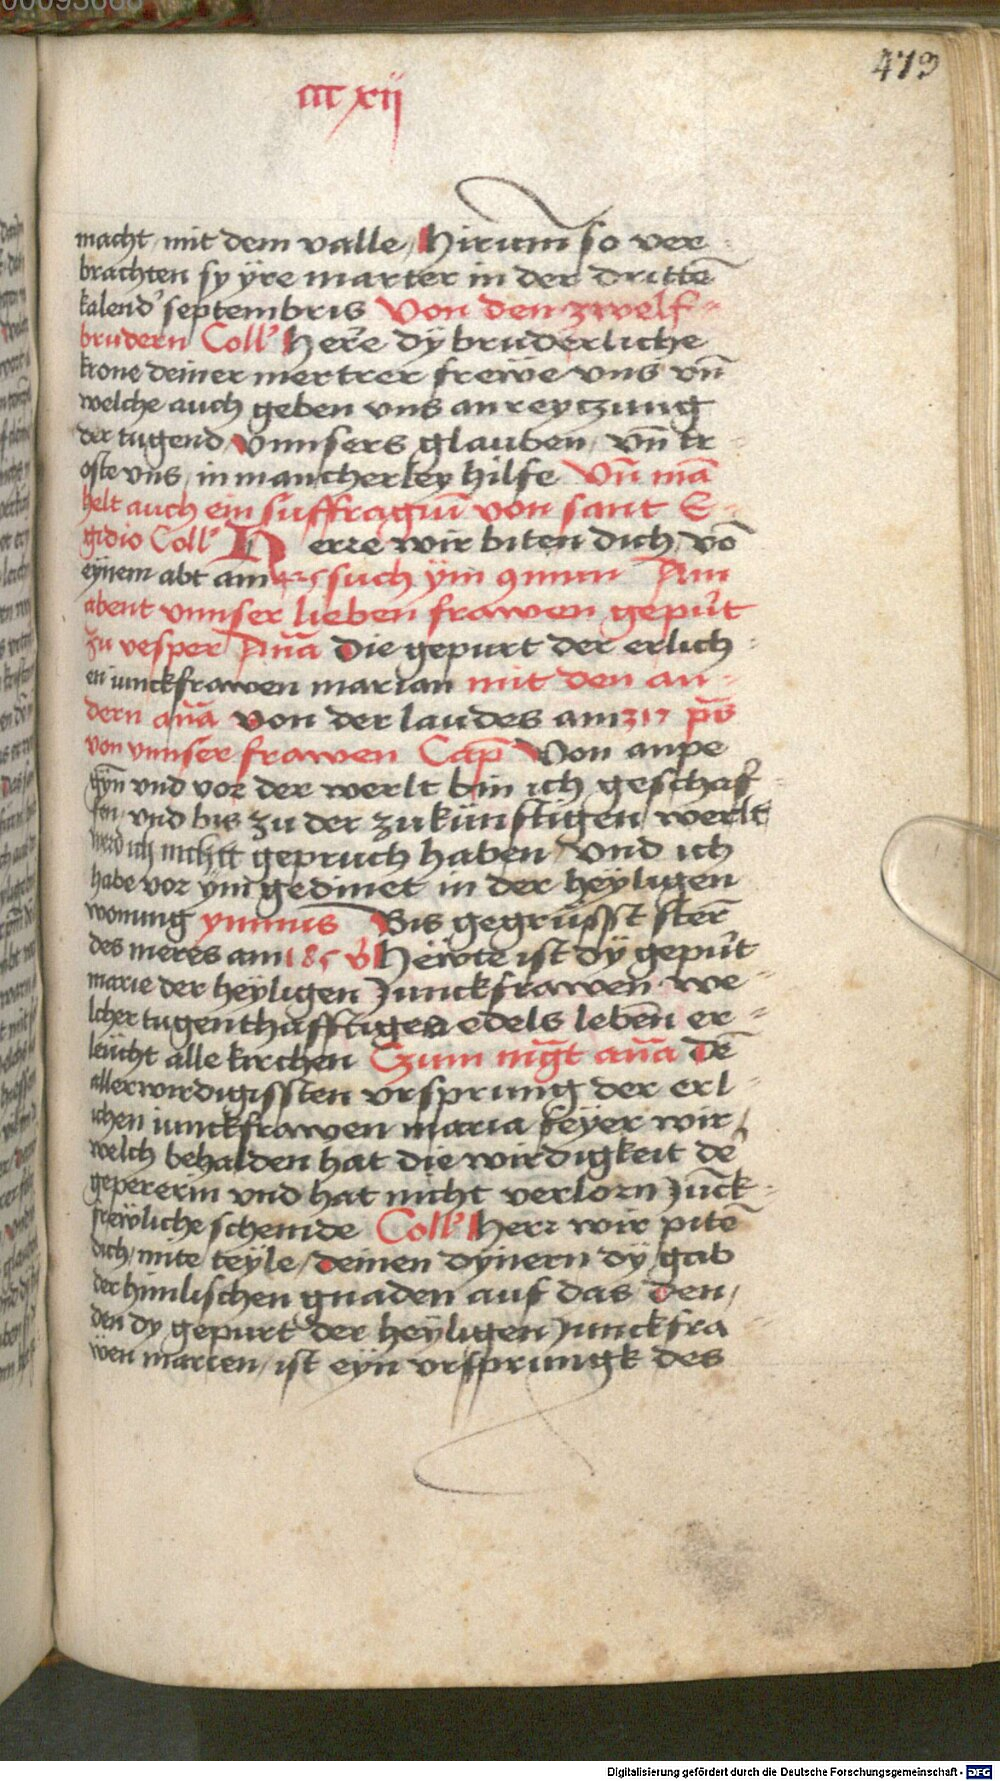 00093668
479
ccc xij
macht / mit dem valle / Hirum̄ so ver
brachten sy ÿre marter in der drittē
kalend' septembris Von den zwelf-
brudern Coll' Here dÿ bruderliche
krone deiner mertrer frewe vns vn̄
welche auch geben vns anreyczung
der tugend Vnnsers glauben / vn̄ tr
oste vns / in mancherley hilfe Vn̄ mā
helt auch ein suffragiū von sant E-
gidio Coll' Herre wir biten dich / vō
eynem abt am such ÿm 9mun Am
abent vnnser lieben frawen gepūt
zu vesper Anā Die gepurt der erlich-
en iunckfrawen marian mit den an-
dern anā von der laudes am 317 p̄s
von vnnser frawen Cap̄ Von anpe
gÿn vnd vor der werlt bin ich geschaf
fen / vnd bis zu der zukünftigen werlt
werd ich nichtt gepruch haben / vnd ich
habe vor ÿm gedinet in der heÿligen
wonung ymnus Bis gegrüsst stern
des meres am 185 v̄ Hewte ist dÿ gepūt
marie der heÿligen Junckfrawen we-
lcher tugenthafftiges edels lebēn er-
leücht alle kirchen Czum mḡt anā Dē
allerwirdigissten vrsprung der erl-
ichen iunckfrawen maria feÿer wir /
welch behalden hat die wirdigkeit dē
gepererin vnd hat nicht verlorn Jūck-
freÿliche scheinde Coll' Herr wir pitē
dich / mite teÿle / deinen dÿnern dÿ gab
der himlischen gnaden auf das Den /
den dy gepurt der heÿligen Junckfra
wen marien / ist eÿn vrsprungk des
Digitalisierung gefördert durch die Deutsche Forschungsgemeinschaft - DFG